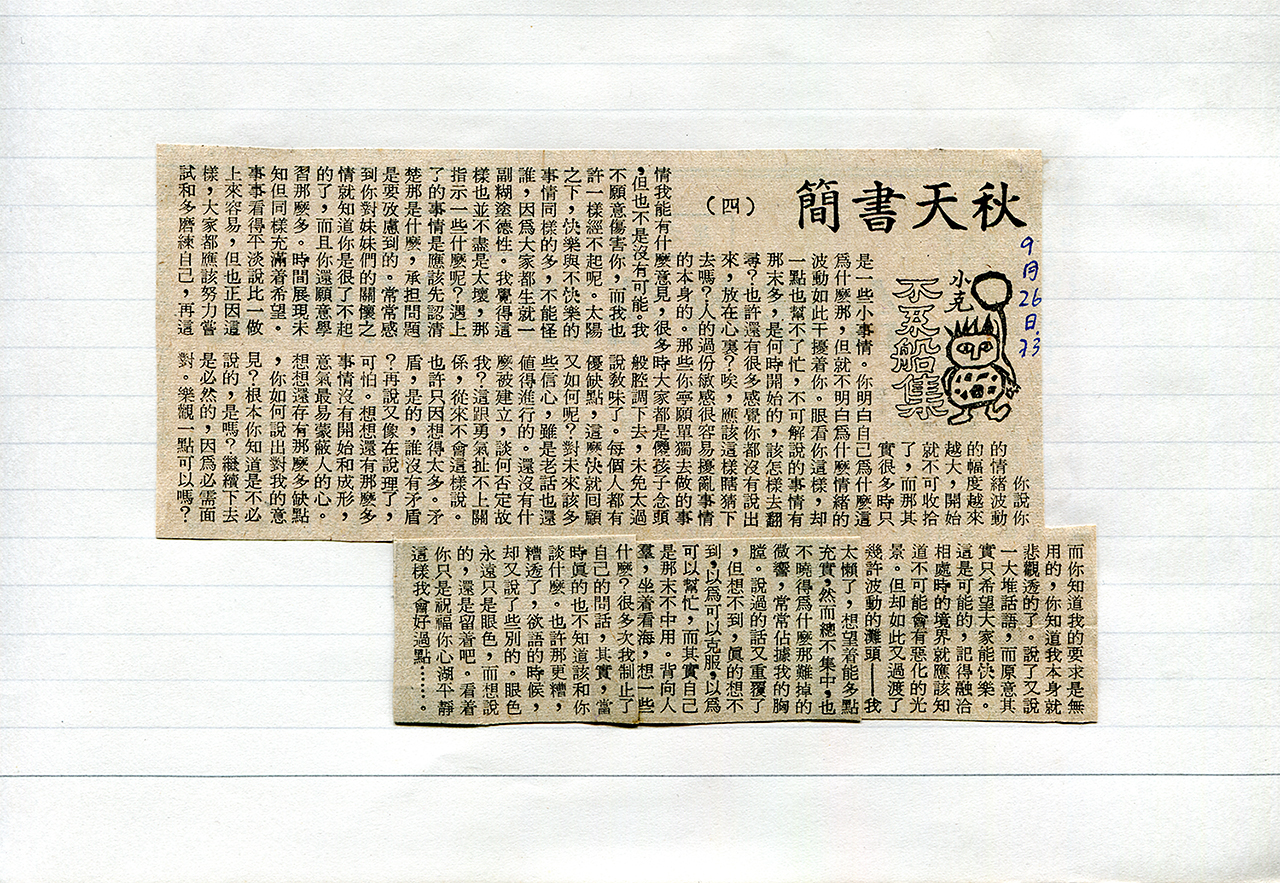 秋天書簡
（四）
9月26日 73
小克
不系船集
你說你
的情緒波動
的幅度越來
越大，開始
就不可收拾
了，而那其
實很多時只
是一些小事情。你明白自己爲什麼這
爲什麼那，但就不明白爲什麼情緒的
波動如此干擾着你。眼看你這樣，却
一點也幫不了忙，不可解說的事情有
那末多，是何時開始的，該怎樣去翻
尋？也許還有很多感覺你都沒有說出
來，放在心裏？唉，應該這樣瞎猜下
去嗎？人的過份敏感很容易擾亂事情
的本身的。那些你寧願單獨去做的事
情我能有什麼意見，很多時大家都是儍孩子念頭
，但也不是沒有可能。我
不願意傷害你，而我也
許一樣經不起呢。太陽
之下，快樂與不快樂的
事情同樣的多，不能怪
誰，因爲大家都生就一
副糊塗德性。我覺得這
樣也並不盡是太壞，那
指示一些什麼呢？遇上
了的事情是應該先認清
楚那是什麼，承担問題
是要攷慮到的。常常感
到你對妹妹們的關懷之
情就知道你是很了不起
的了，而且你還願意學
習那麼多。時間展現未
知但同樣充滿着希望。
事事看得平淡說比一做
上來容易，但也正因這
樣，大家都應該努力嘗
試和多磨練自己，再這
般腔調下去，未免太過
說教味了。每個人都有
優缺點，這麼快就回顧
又如何呢？對未來該多
些信心，雖是老話也還
值得進行的。還沒有什
麼被建立，談何否定故
我？這跟勇氣扯不上關
係，從來不會這樣說。
也許只因想得太多。矛
盾，是的，誰沒有矛盾
？再說又像在說理了，
可怕。想想還有那麼多
事情沒有開始和成形，
意氣最易蒙蔽人的心。
想想還存有那麼多缺點
，你如何說出對我的意
見？根本你知道是不必
說的，是嗎？繼續下去
是必然的，因爲必需面
對。樂觀一點可以嗎？
而你知道我的要求是無
用的，你知道我本身就
悲觀透的了。說了又說
一大堆話語，而原意其
實只希望大家能快樂。
這是可能的，記得融洽
相處時的境界就應該知
道不可能會有惡化的光
景。但却如此又過渡了
幾許波動的灘頭——我
太懶了，想望着能多點
充實，然而總不集中，也
不曉得爲什麼那難掉的
微響，常常佔據我的胸
膛。說過的話又重覆了
，但想不到，眞的想不
到，以爲可以克服，以爲
可以幫忙，而其實自己
是那末不中用。背向人
羣，坐着看海，想一些
什麼？很多次我制止了
自己的問話，其實，當
時眞的也不知道該和你
談什麼。也許那更糟，
糟透了，欲語的時候，
却又說了些別的。眼色
永遠只是眼色，而想說
的，還是留着吧。看着
你只是祝福你心湖平靜
這樣我會好過點……。